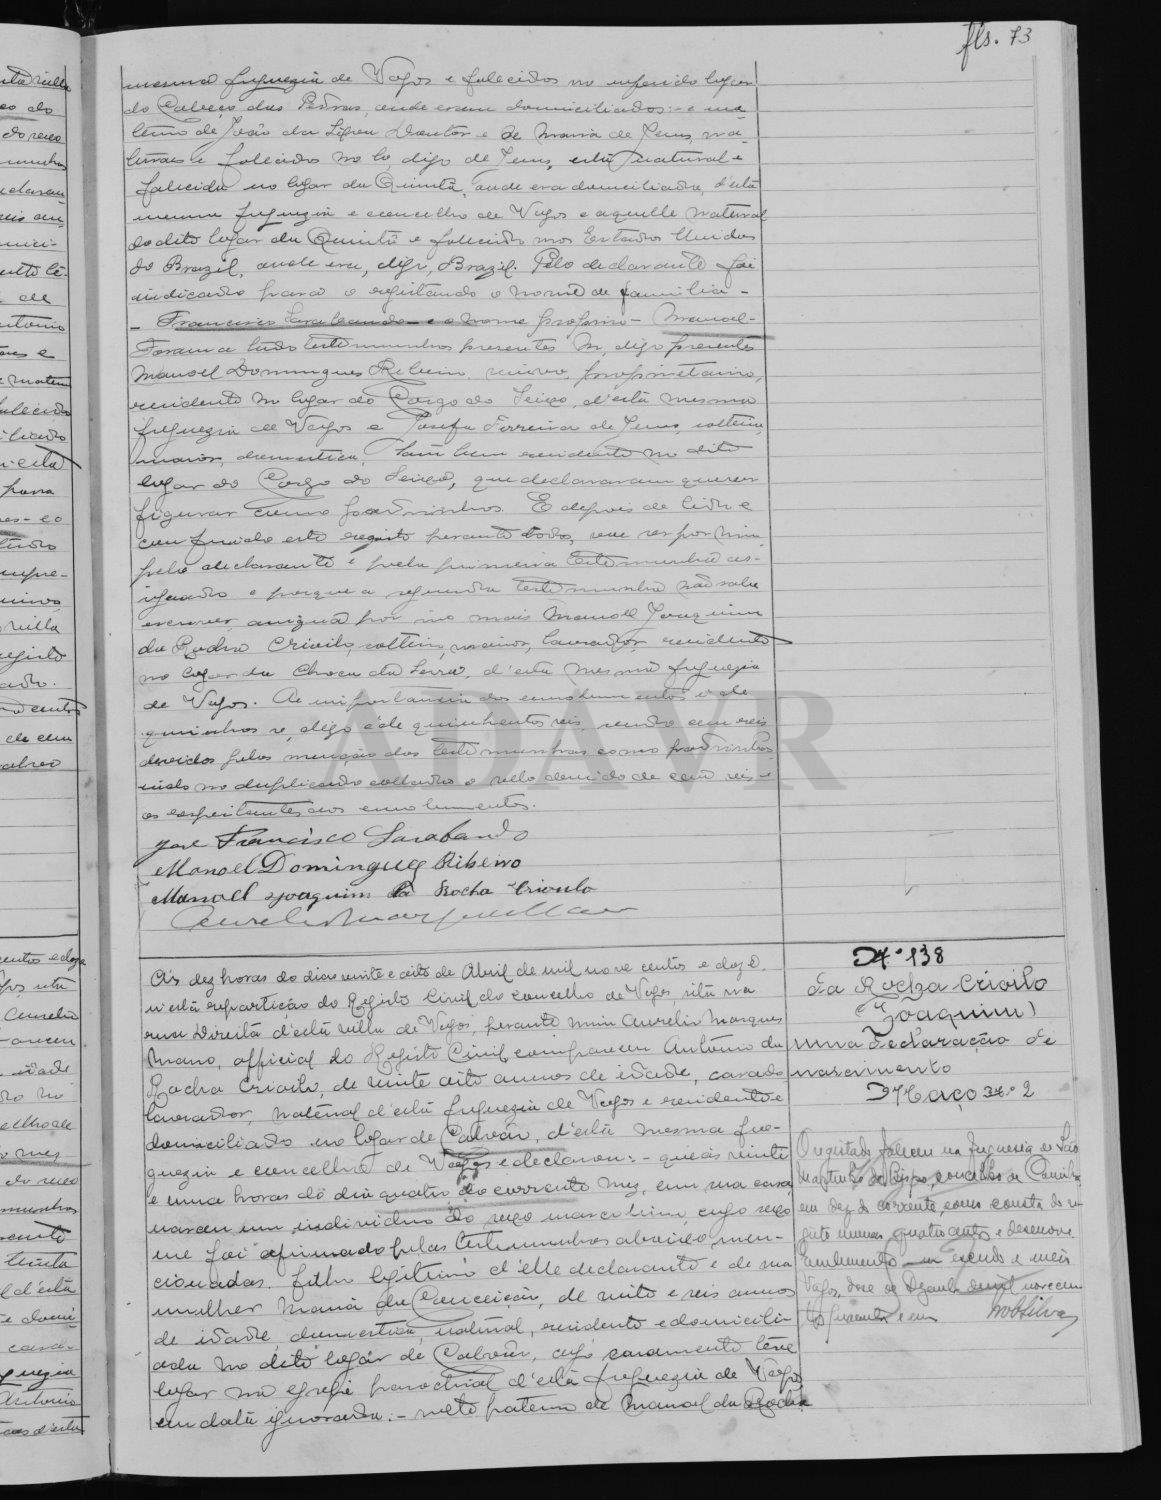 fls. 73
mesma freguezia de Vagos e falecidos no referido logar
do Cabeço das Pedras, onde eram domiciliados: - e ma-
terno de João da Silva Doutor e de Maria de Jesus, na-
turaes e falecidos no lo, digo de Jesus, esta natural e
falecida no logar da Quintã, onde era domiciliada, d'esta
mesma freguezia e concelho de Vagos e aquelle natural
do dito logar da Quintã e falecido nos Estados Unidos
do Brazil, onde era, digo, Brazil. Pelo declarante foi
indicado para o registando o nome de familia -
- Francisco Sarabando - e o nome proprio - Manoel -
Foram a tudo testemunhas presentes M, digo presentes
Manoel Domingues Ribeiro, viuvo, proprietario,
residente no logar do Corgo do Seixo, d'esta mesma
freguezia de Vagos e Josefa Ferreira de Jesus, solteira,
maior, domestica, tambem residente no dito
logar do Corgo do Seixo, que declararam querer
figurar como padrinhos. E depois de lido e
conferido este registo perante todos, vae ser por mim
pelo declarante e pela primeira testemunha as-
signado e porque a segunda testemunha não sabe
escrever, assigna por mais Manoel Joaquim
da Rocha Crioilo, solteiro, maior, lavrador, residente
no logar da Choca da Serra, d'esta mesma freguezia
de Vagos. A importancia dos emolumentos é de
quinhos re, digo é de quinhentos reis, sendo cem reis
devidos pelos menção das testemunhas como padrinhos
indo no duplicado collado o sello devido de cem reis e
os respeitantes aos emolumentos.
José Francisco Sarabando
Manoel Domingues Ribeiro
Manoel Joaquim da Rocha Crioulo
Aurelio Marques Mano
ADAVR
N.º 138
da Rocha Crioilo
(Joaquim)
uma declaração de
nascimento
Maço n.º 2
Ás dez horas do dia vinte e oito de Abril de mil nove centos e doze,
n'esta repartição do Registo Civil do concelho de Vagos, sita na
rua Direita d'esta villa de Vagos, perante mim Aurelio Marques
Mano, official do Registo Civil compareceu Antonio da
Rocha Crioilo, de vinte oito annos de idade, casado
lavrador, natural d'esta freguezia de Vagos e residente e
domiciliado no logar de Calvão, d'esta mesma fre-
guezia e concelho de Vagos e declarou: - que ás vinte
e uma horas do dia quatro do corrente mez, em sua casa,
nasceu um individuo do sexo masculino, cujo sexo
me foi afirmado pelas testemunhas abaixo men-
cionadas, filho legitimo d'elle declarante e de sua
mulher Maria da Conceição, de vinte e seis annos
de idade, domestica, natural, residente e domicilia-
ada no dito logar de Calvão, cujo casamento teve
logar na egreja parochial d'esta freguezia de Vagos
em data ignorada: - neto paterno de Manoel da Rocha
O registado faleceu na freguesia de São
Martinho do Bispo, concelho de Coimbra,
em dez do corrente, como consta do re-
gisto numero quatrocentos e desenove.
Emolumento um escudo e meio
Vagos, doze de Dezembro de mil novecen
tos quarenta e um